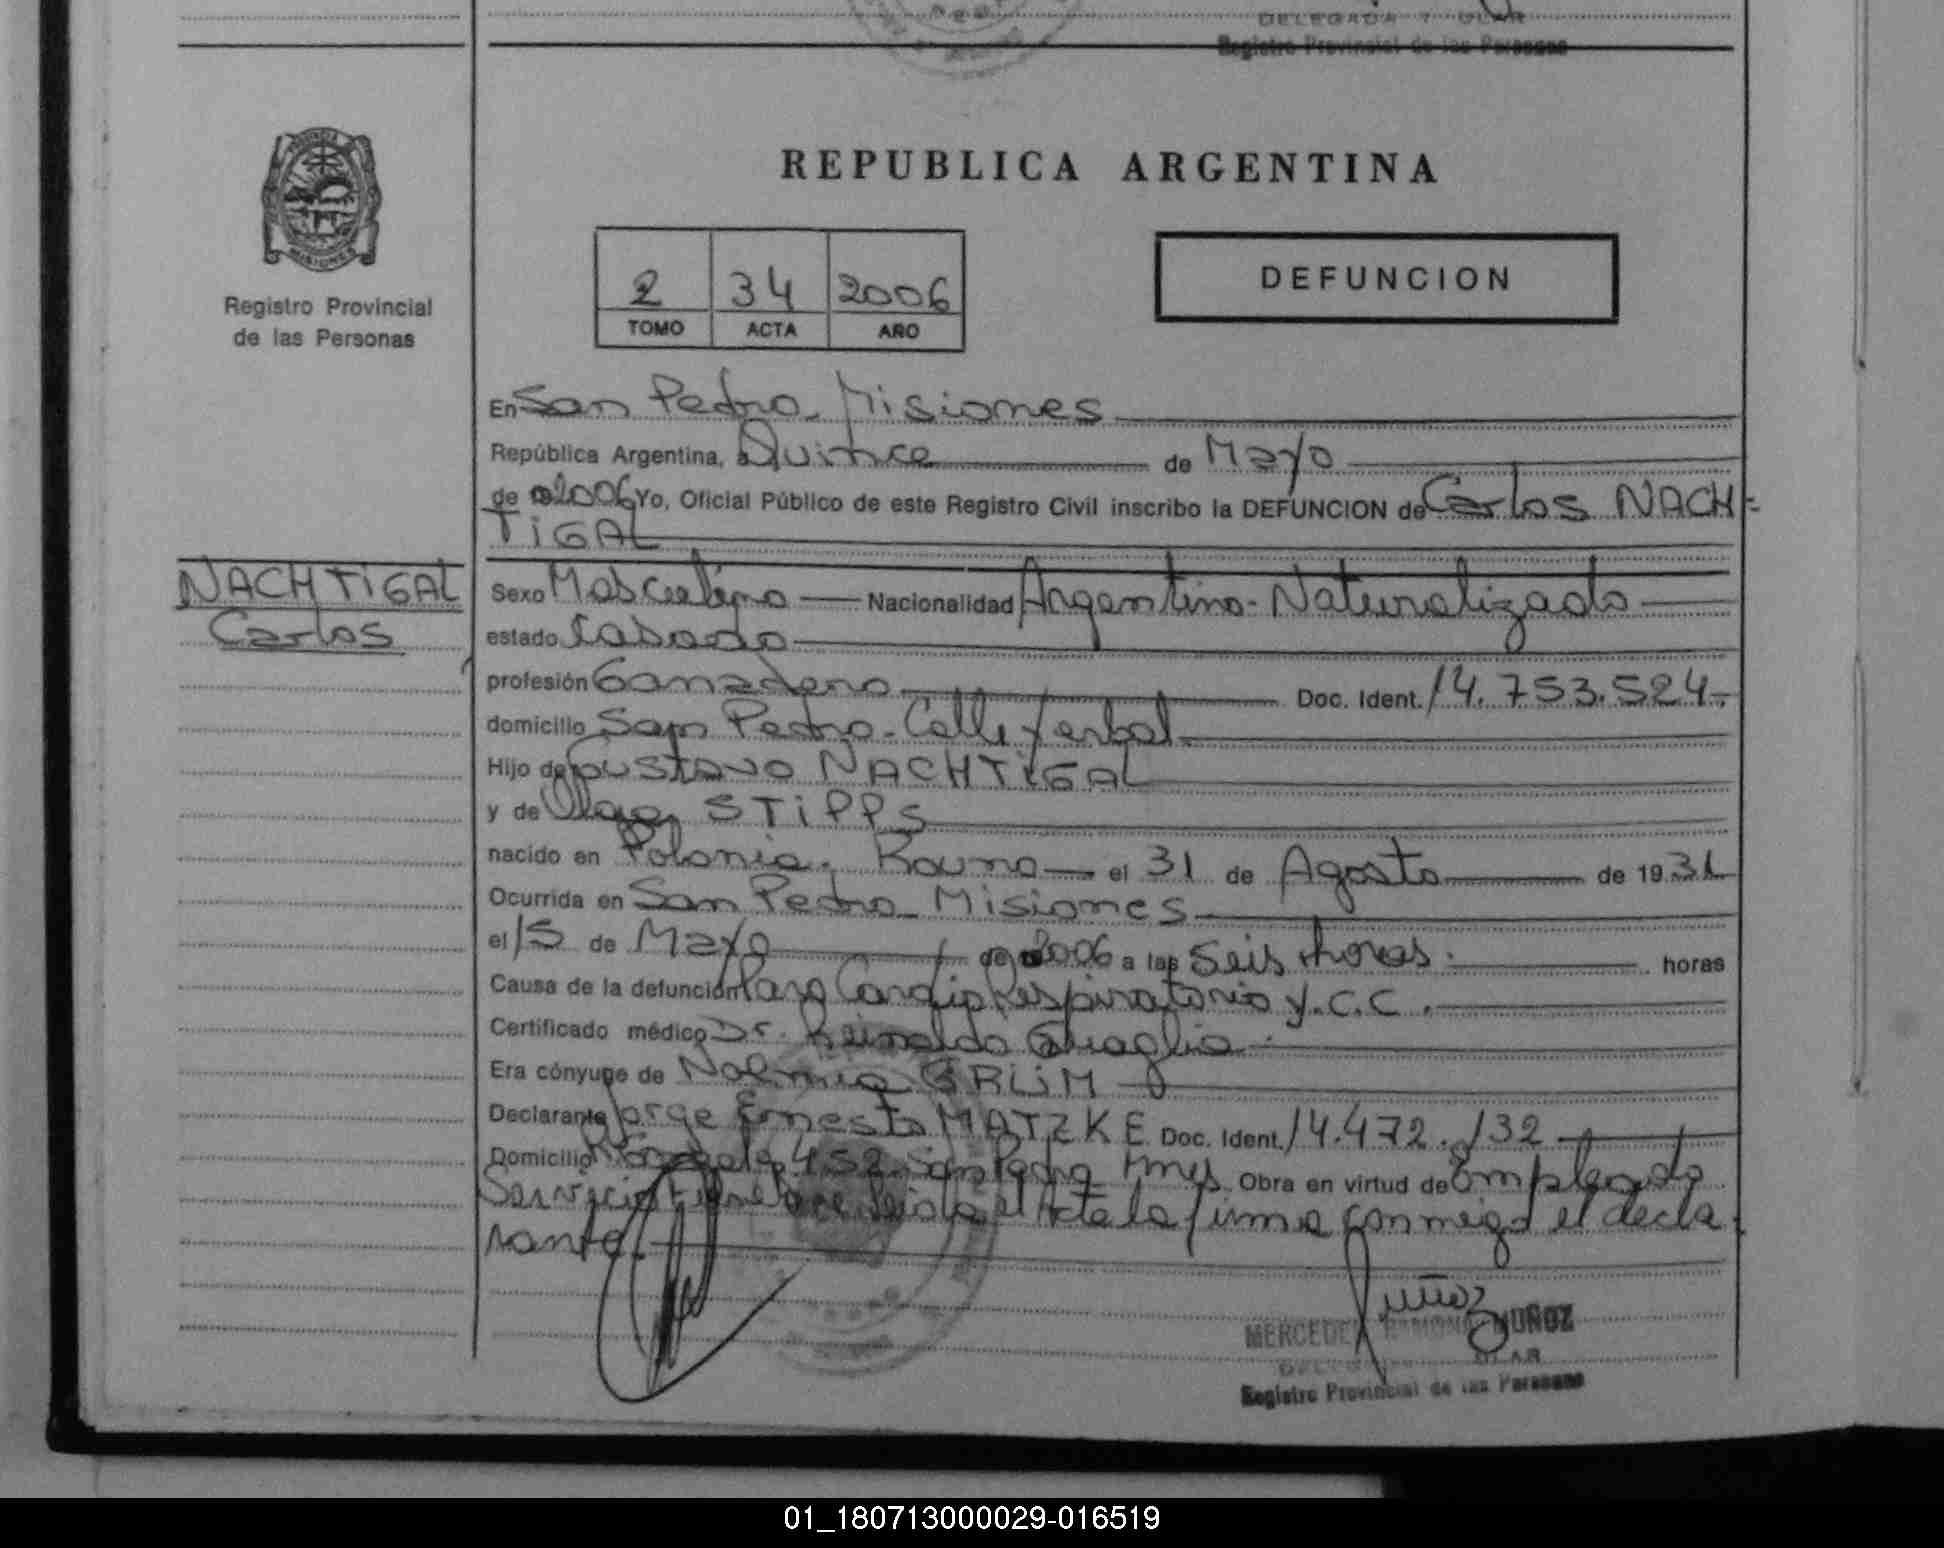 DELEGADA T
Registro Provincial de las Personas
REPUBLICA ARGENTINA
PROVINCIA
MISIONES
Registro Provincial
de las Personas
2 34 2006
TOMO ACTA AÑO
DEFUNCION
En San Pedro - Misiones
República Argentina, a Quince de Mayo
de 2006 Yo, Oficial Público de este Registro Civil inscribo la DEFUNCION de Carlos NACH=
TiGAL
NACHTiGAL
Carlos
Sexo Masculino Nacionalidad Argentino - Naturalizado
estado Casado
profesión Ganadero Doc. Ident. 14.753.524.-
domicilio San Pedro - Calle Yerbal
Hijo de Gustavo NACHTiGAL
y de Olga STiPPS
nacido en Polonia. Rovno el 31 de Agosto de 1931
Ocurrida en San Pedro - Misiones
el 15 de Mayo de 2006 a las Seis horas. horas
Causa de la defunción Paro Cardio Respiratorio y.C.C.
Certificado médico Dr. Reinaldo
Era cónyuge de Noemia GRUM
Declarante Jorge Ernesto MATZKE Doc. Ident. 14.472.132
Domicilio 452 San Pedro Mnes. Obra en virtud de Empleado
Servicio Funebre leida el Acta la firma conmigo el decla-
rante.
Muñoz
MERCEDES RAMONA MUÑOZ
Registro Provincial de las Personas
01_180713000029-016519